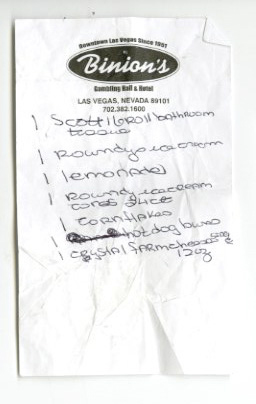 Downtown Las Vegas Since 1951
Binion's
Gambling Hall & Hotel
LAS VEGAS, NEVADA 89101
702.382.1600
1 Scott 1 roll bathroom
tissue
1 Roundys icecream
1 lemonade
1 Roundy icecream
1 Cornflakes
1 hotdog buns
1 Crystal farm cheese
12oz